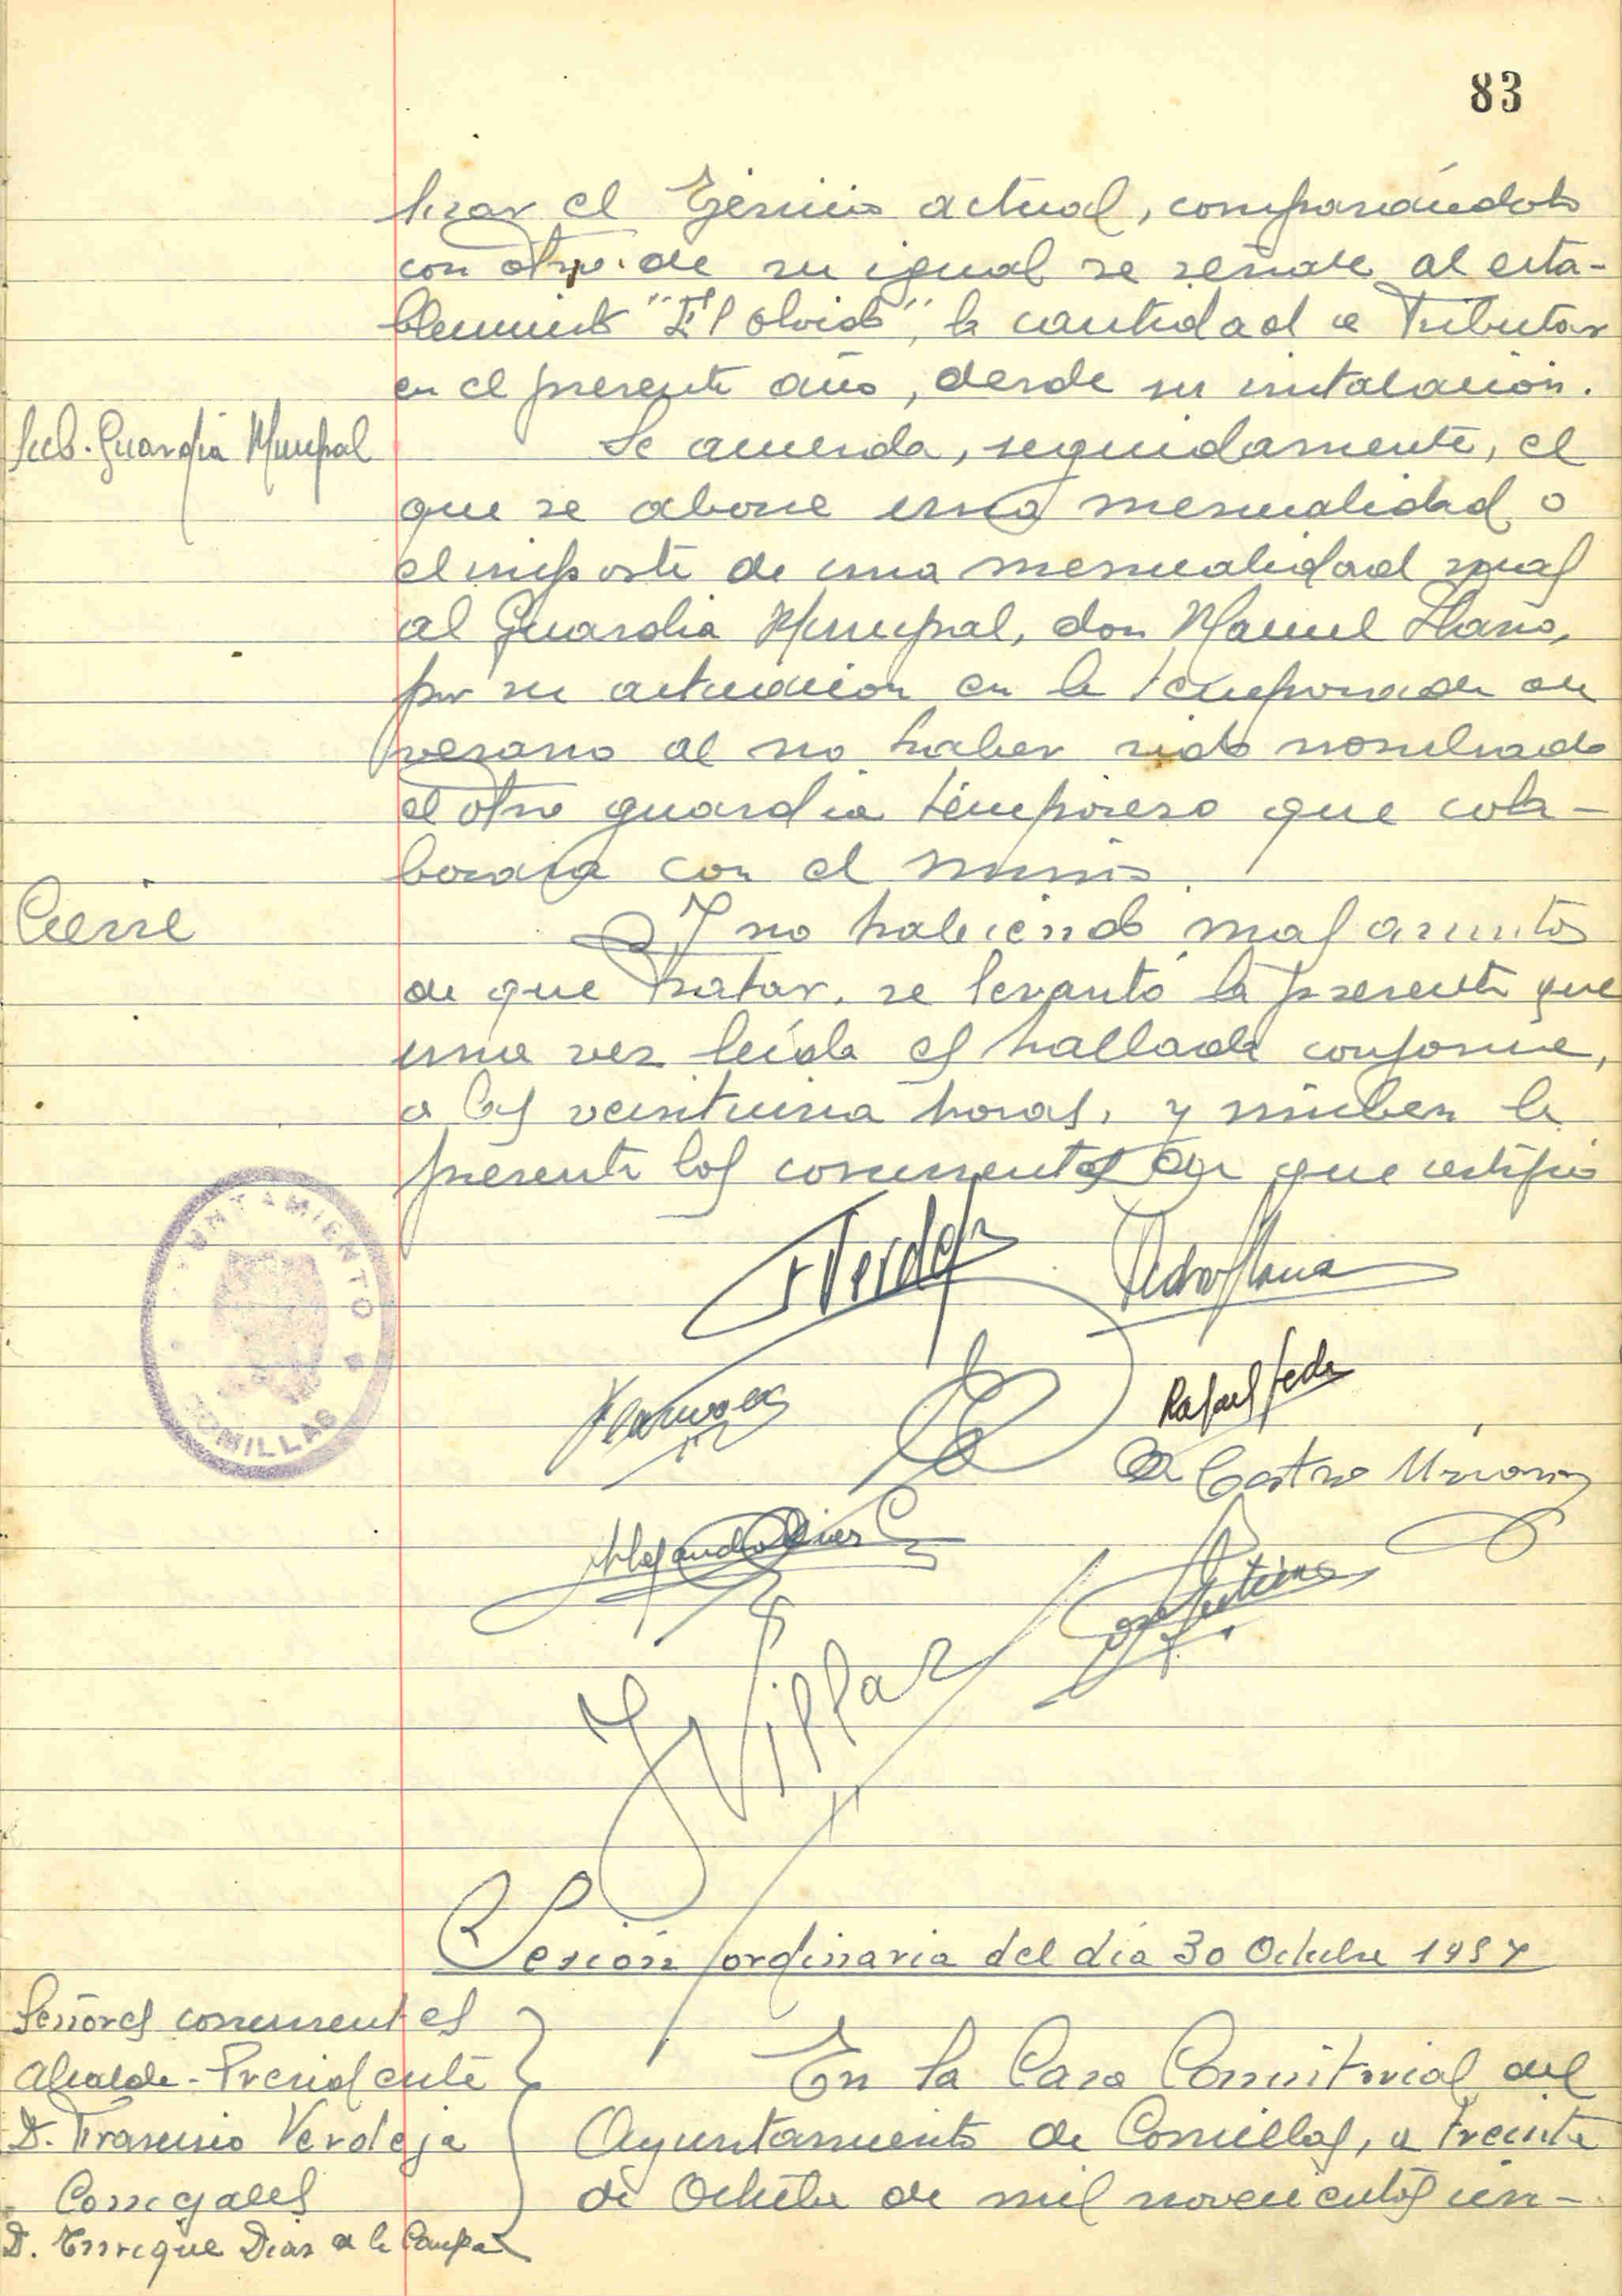 83
lizar el Ejercicio actual, comparándolo
con otro de su igual se señale al esta-
blecimiento "El Olvido", la cantidad a Tributar
en el presente año, desde su instalación.
Sueb. Guardia Municipal
Se acuerda, seguidamente, el
que se abone una mensualidad o
el importe de una mensualidad igual
al Guardia Municipal, don Manuel Llano,
por su actuación en la temporada de
verano al no haber sido nombrado
el otro guardia temporero que cola-
borara con el mismo.
Cierre
Y no habiendo mas asuntos
de que tratar, se levantó la presente que
una vez leída es hallada conforme,
a las veintiuna horas, y suscriben la
presente los concurrentes de que certifico
AYUNTAMIENTO
COMILLAS
Verdeja
Pedro Llana
Rafael
Castro
Alejandro
Jose Gutierrez
J Villar
Sesión ordinaria del día 30 Octubre 1957
Señores concurrentes
Alcalde-Presidente
D. Trasiusio Verdeja
Concejales
D. Enrique Diaz de la Campa
En la Casa Consistorial del
Ayuntamiento de Comillas, a treinta
de Octubre de mil novecientos cin-